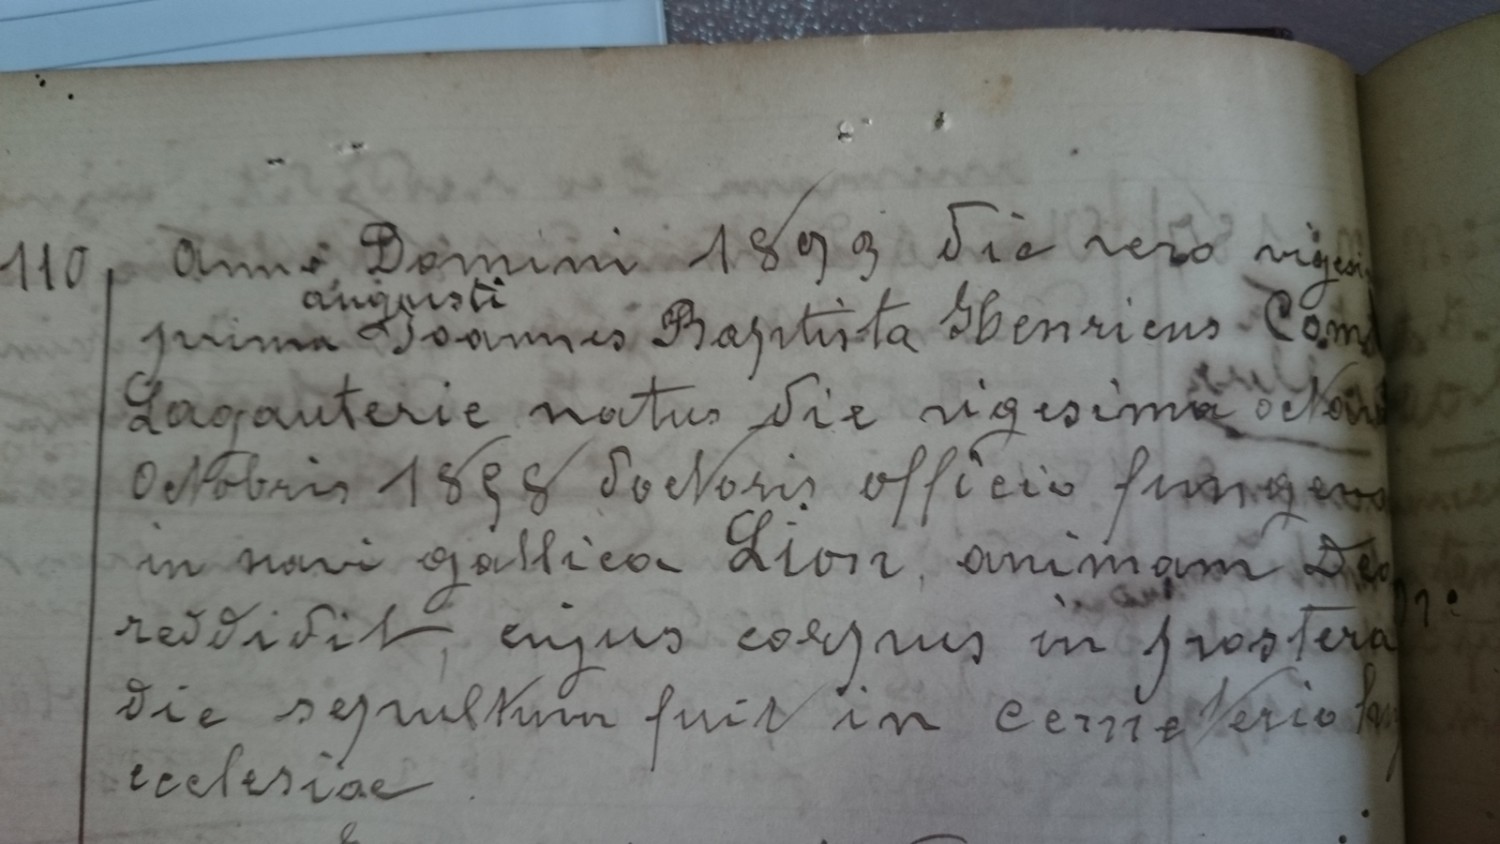 110 Anno Domini 1893 die vero vigesi
augusti
prima Joannes Baptista Henricus Comb
Lagauterie natus die vigesima octava
Octobris 1858 doctoris officio fungens
in navi gallica Lion, animam Deo
reddidit, cujus corpus in postera
die sepultum fuit in cemeterio
ecclesiae